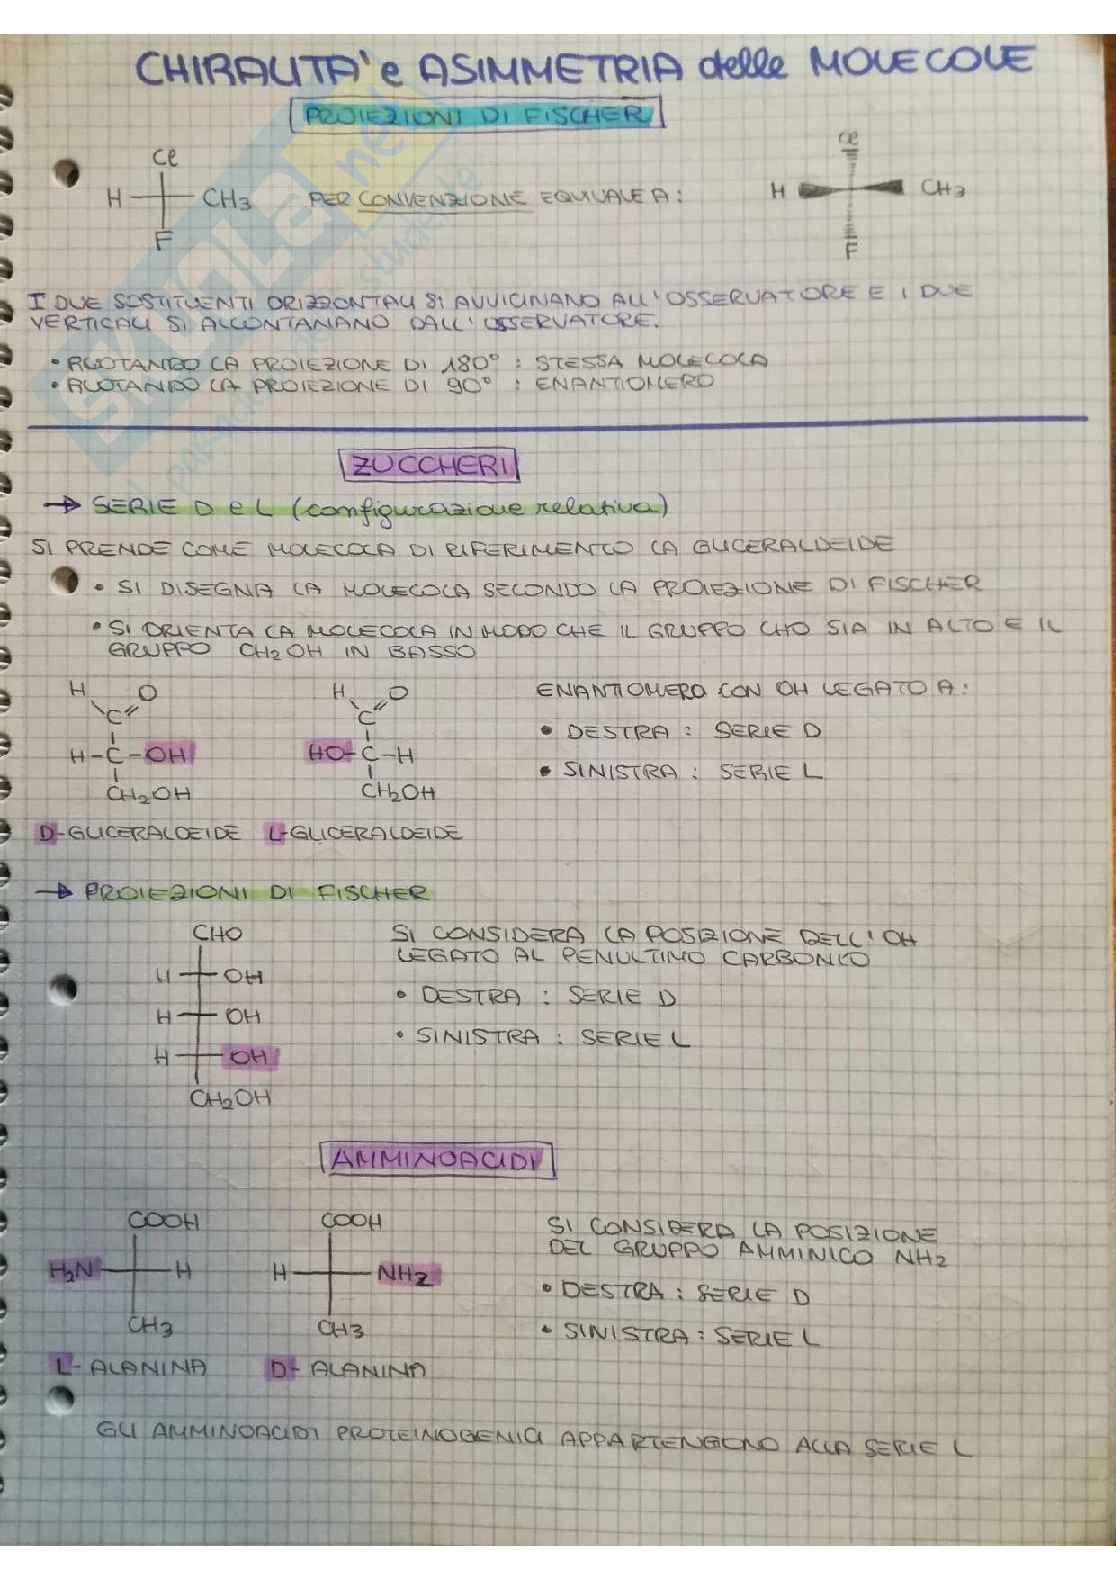 CHIRALITA' e ASIMMETRIA delle MOLECOLE
PROIEZIONI DI FISCHER
Cl
H CH3
F
PER CONVENZIONE EQUIVALE A:
Cl
H CH3
F
I DUE SOSTITUENTI ORIZZONTALI SI AVVICINANO ALL'OSSERVATORE E I DUE
VERTICALI SI ALLONTANANO DALL'OSSERVATORE.
• RUOTANDO LA PROIEZIONE DI 180° : STESSA MOLECOLA
• RUOTANDO LA PROIEZIONE DI 90° : ENANTIOMERO
ZUCCHERI
→ SERIE D e L (configurazione relativa)
SI PRENDE COME MOLECOLA DI RIFERIMENTO LA GLICERALDEIDE
• SI DISEGNA LA MOLECOLA SECONDO LA PROIEZIONE DI FISCHER
• SI ORIENTA LA MOLECOLA IN MODO CHE IL GRUPPO CHO SIA IN ALTO E IL
GRUPPO CH2OH IN BASSO
H O
C
H-C-OH
CH2OH
D-GLICERALDEIDE
H O
C
HO-C-H
CH2OH
L-GLICERALDEIDE
ENANTIOMERO CON OH LEGATO A:
• DESTRA : SERIE D
• SINISTRA : SERIE L
→ PROIEZIONI DI FISCHER
CHO
H OH
H OH
H OH
CH2OH
SI CONSIDERA LA POSIZIONE DELL'OH
LEGATO AL PENULTIMO CARBONIO
• DESTRA : SERIE D
• SINISTRA : SERIE L
AMMINOACIDI
COOH
H2N H
CH3
L-ALANINA
COOH
H NH2
CH3
D-ALANINA
SI CONSIDERA LA POSIZIONE
DEL GRUPPO AMMINICO NH2
• DESTRA : SERIE D
• SINISTRA : SERIE L
GLI AMMINOACIDI PROTEINOGENICI APPARTENGONO ALLA SERIE L